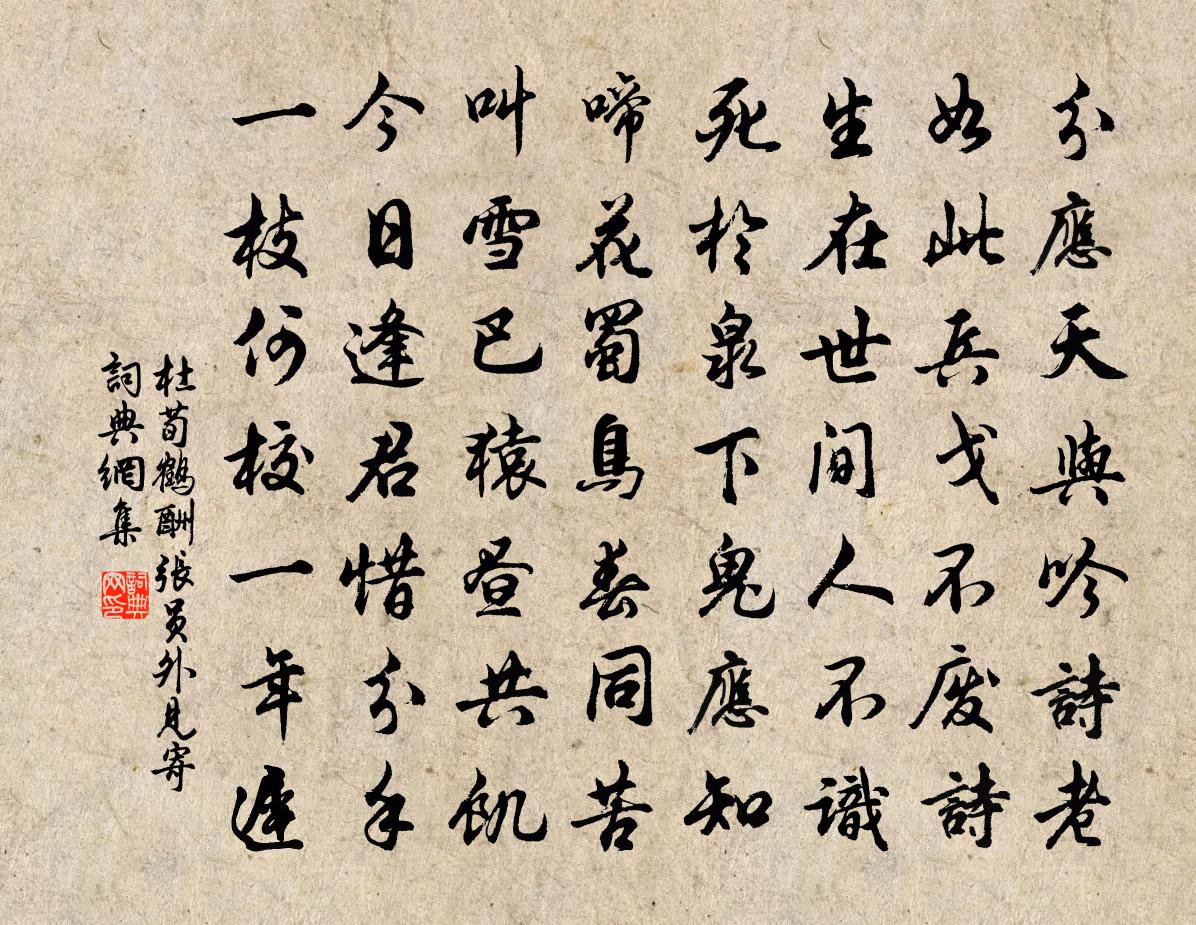 分應天與吟詩老
如此兵戈不廢詩
生在世間人不識
死於泉下鬼應知
啼花蜀鳥春同苦
叫雪巴猿晝共飢
今日逢君惜分手
一枝何校一年遲
杜荀鶴酬張員外見寄
詞典網集
詞典网印